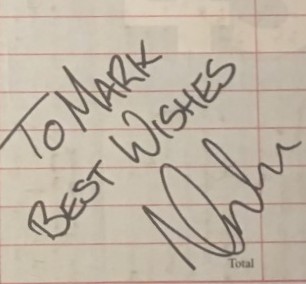 To MARK
BEST WISHES
Total